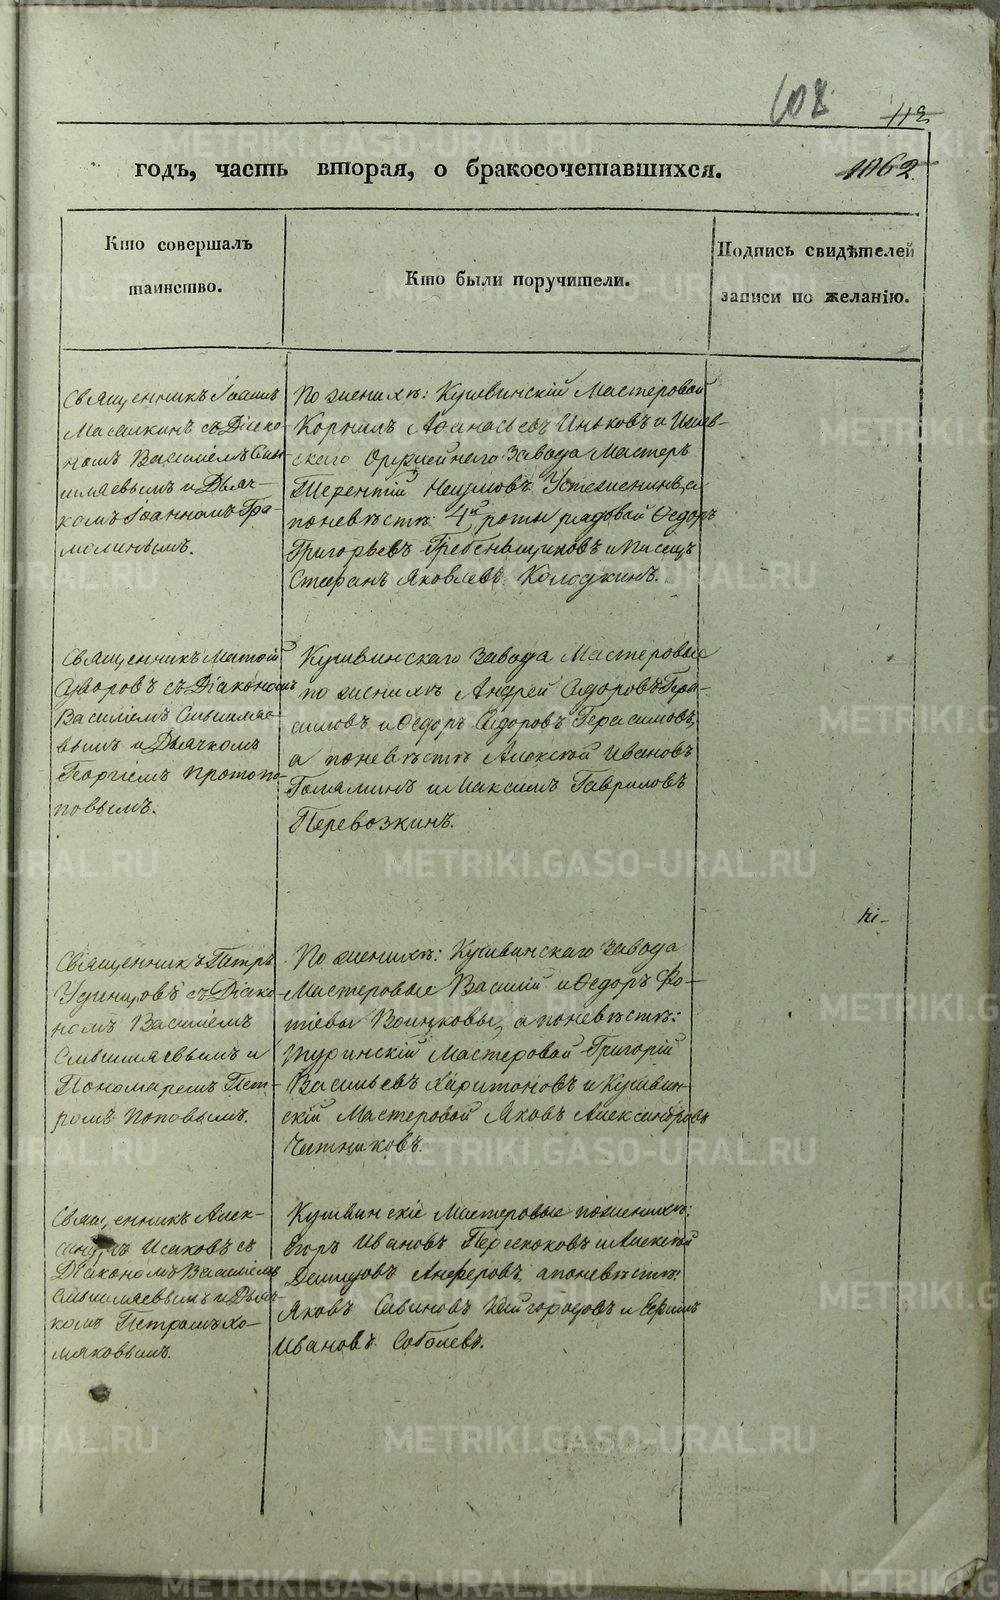 608
112
годъ, часть вторая, о бракосочетавшихся.
1062
Кто совершалъ
таинство.
Кто были поручители.
Подпись свидѣтелей
записи по желанію.
Священникъ Іоаннъ
Масалкинъ съ Діако-
номъ Василіемъ
и Дьяч-
комъ Іоанномъ Гра-
молинымъ.
По женихѣ: Кушвинскій Мастеровой
Корнилъ Аѳанасьевъ Иньковъ и Ижев-
скаго Оружейнаго Завода Мастеръ
Терентій Наумовъ Устюжининъ, а
по невѣстѣ: 4й роты рядовой Ѳедоръ
Григорьевъ Гребеньщиковъ и писецъ
Стефанъ Яковлевъ Колодкинъ.
Священникъ Матѳій
съ Діакономъ
Василіемъ
и Дьячкомъ
Георгіемъ Протопо-
повымъ.
Кушвинскаго Завода Мастеровые
по женихѣ Андрей Сидоровъ Гера-
симовъ и Ѳедоръ Сидоровъ Герасимовъ,
а по невѣстѣ Алексѣй Ивановъ
и Максимъ Гавриловъ
Перевозкинъ.
Священникъ Петръ
Удинцовъ съ Діако-
номъ Василіемъ
и
Пономаремъ Пет-
ромъ Поповымъ.
По женихѣ: Кушвинскаго Завода
Мастеровые Василій и Ѳедоръ Фо-
тіевы Воинковы, а по невѣстѣ:
Туринскій Мастеровой Григорій
Васильевъ Харитоновъ и Кушвин-
скій Мастеровой Яковъ Александровъ
Священникъ Алек-
сандръ Исаковъ съ
Діакономъ Василіемъ
и Дьяч-
комъ Петромъ Хо-
мяковымъ.
Кушвинскіе Мастеровые по женихѣ:
Егоръ Ивановъ Перескоковъ и Алексѣй
Демидовъ Анферовъ, а по невѣстѣ:
Яковъ Савиновъ Кайгородовъ и Ефимъ
Ивановъ Соболевъ.
METRIKI.GASO-URAL.RU